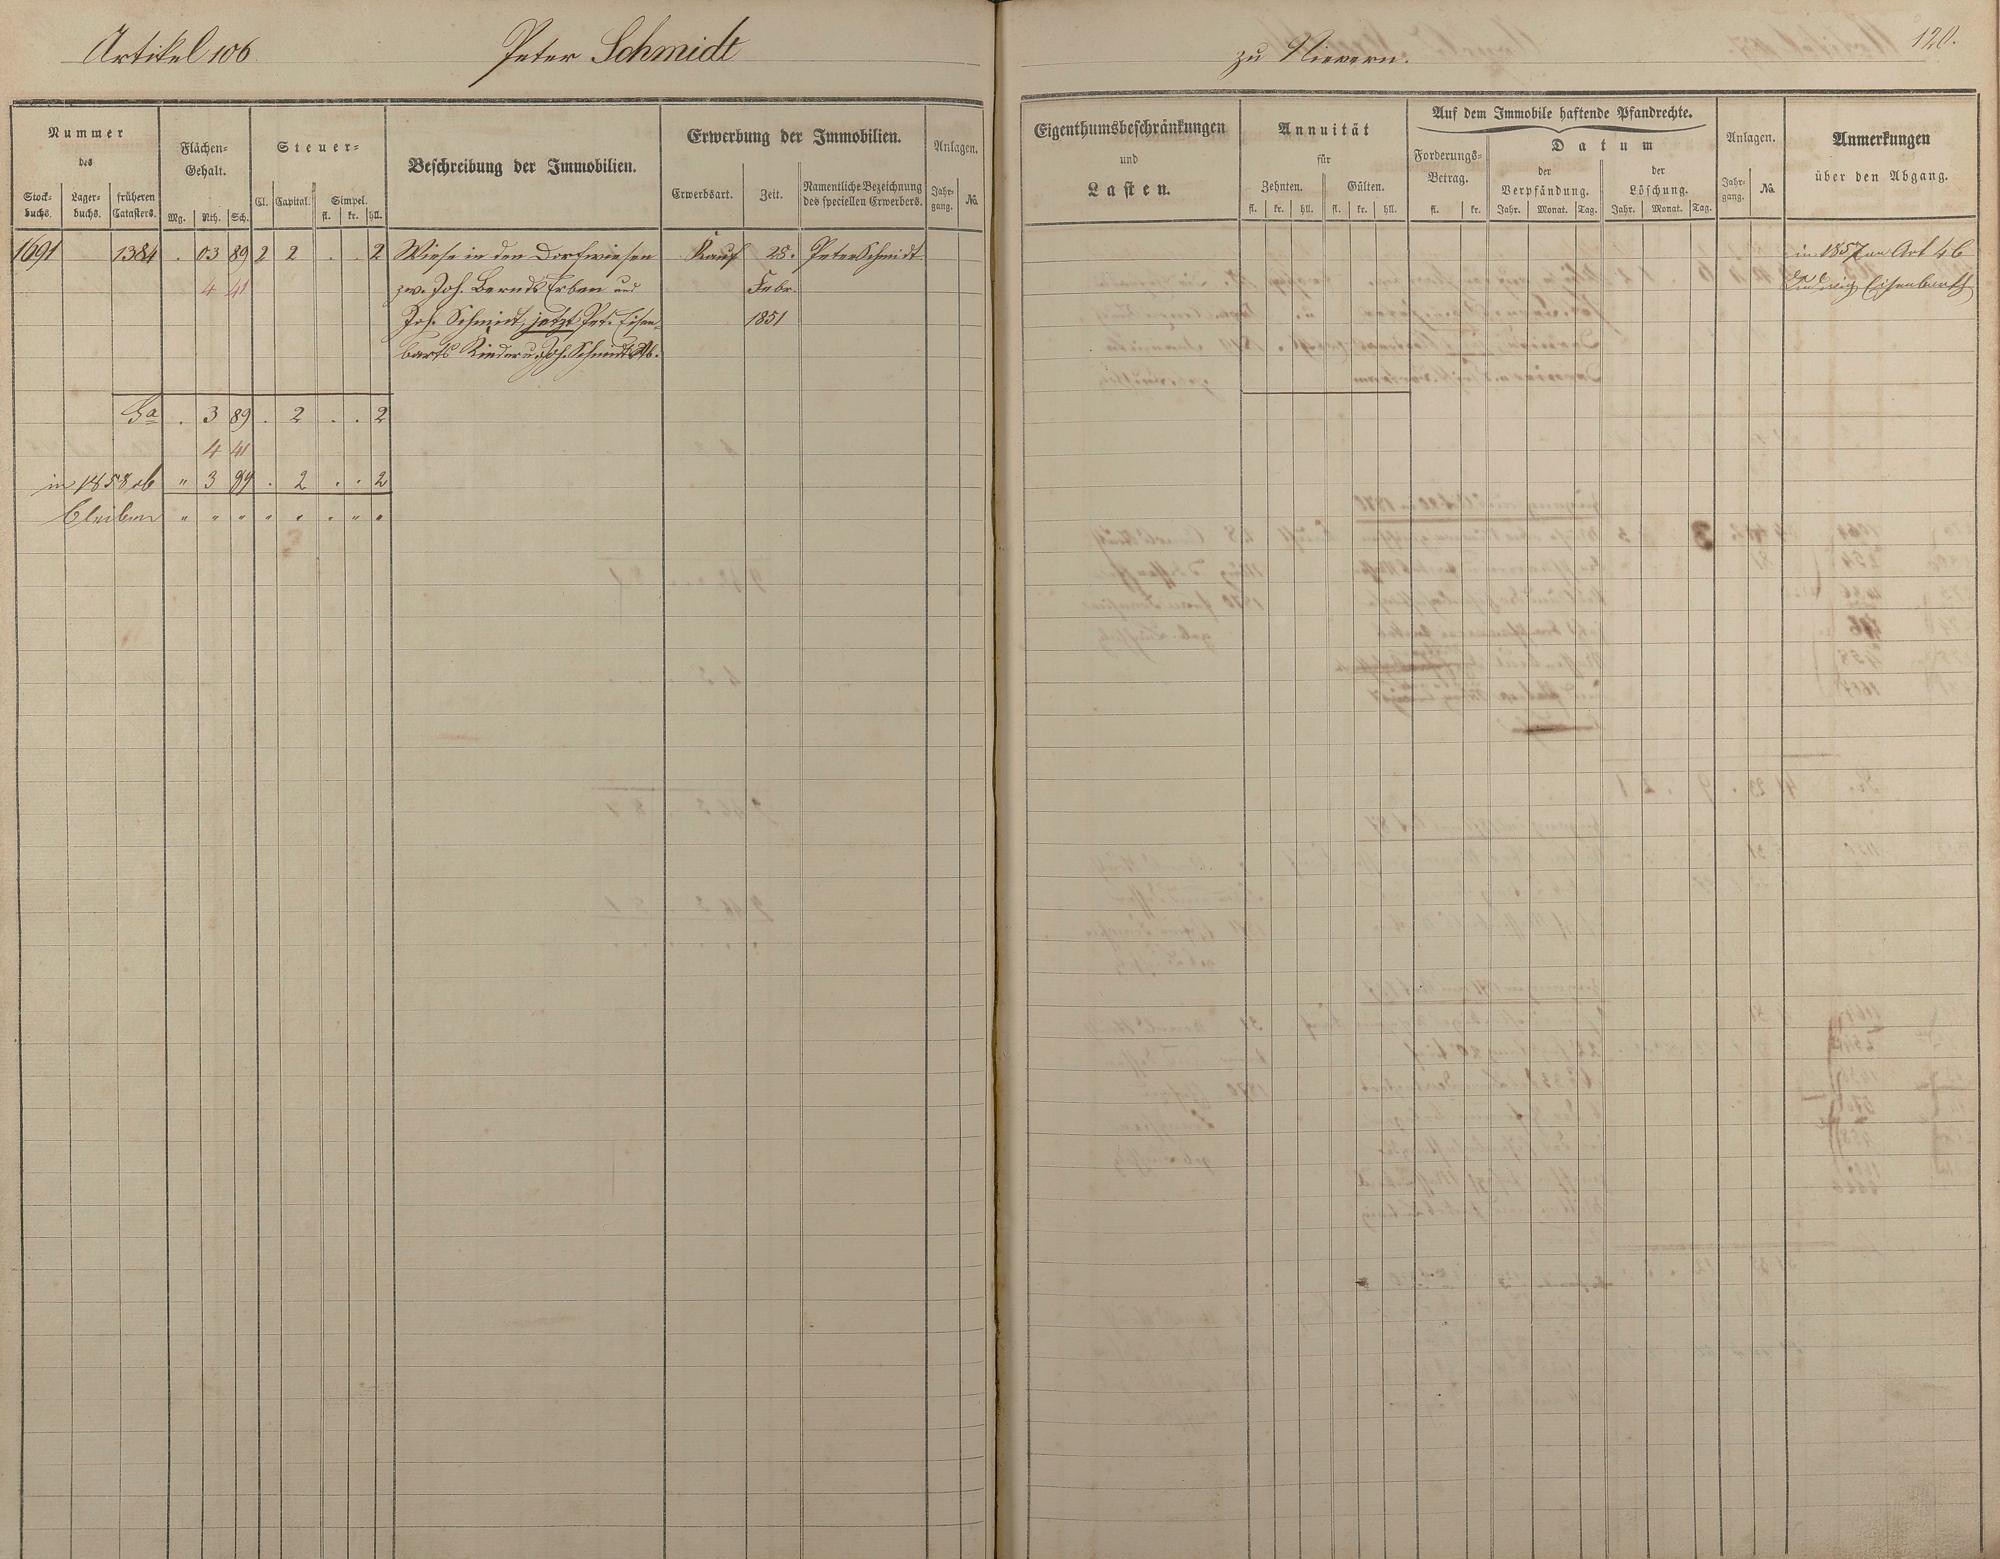 Artikel 106. Peter Schmidt
zu Nievern. 120.
Nummer
des
Stock-
buchs.
Lager-
buchs.
früheren
Catasters.
Flächen-
Gehalt.
Mg. Rth. Sch.
Steuer-
Cl. Capital. Simpel.
fl. kr. hll.
Beschreibung der Immobilien.
Erwerbung der Immobilien.
Erwerbsart. Zeit. Namentliche Bezeichnung
des speciellen Erwerbers.
Anlagen.
Jahr-
gang. No.
Eigenthumsbeschränkungen
und
Lasten.
Annuität
für
Zehnten. Gülten.
fl. kr. hll. fl. kr. hll.
Auf dem Immobile haftende Pfandrechte.
Forderungs-
Betrag.
fl. kr.
Datum
der
Verpfändung.
Jahr. Monat. Tag.
der
Löschung.
Jahr. Monat. Tag.
Anlagen.
Jahr-
gang. No.
Anmerkungen
über den Abgang.
1691 1384 . 03 89 2 2 . . 2 Wiese in den Dorfwiesen Kauf 25. Peter Schmidt
4 41 zw. Joh. Bernds Erben und Febr.
Joh. Schmidt, jetzt Pet. Eisen- 1851
barts Kinder u. Joh. Schmidt
in 1857 an Art 46
Ludwig Eisenbarth
Sa . 3 89 . 2 . . 2
4 41
in 1858 ab " 3 89 . 2 . . 2
bleiben " " " " " " " "